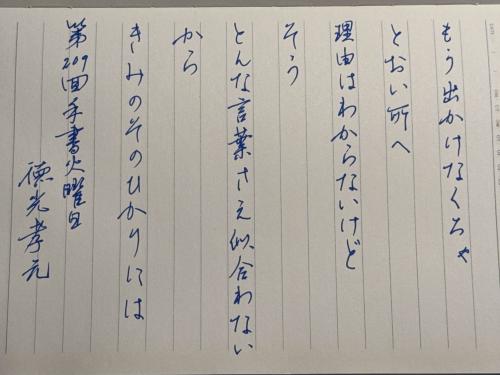 もう出かけなくちゃ
とおい所へ
理由はわからないけど
そう
どんな言葉さえ似合わない
から
きみのそのひかりには
第209回手書火曜日
徳光孝元